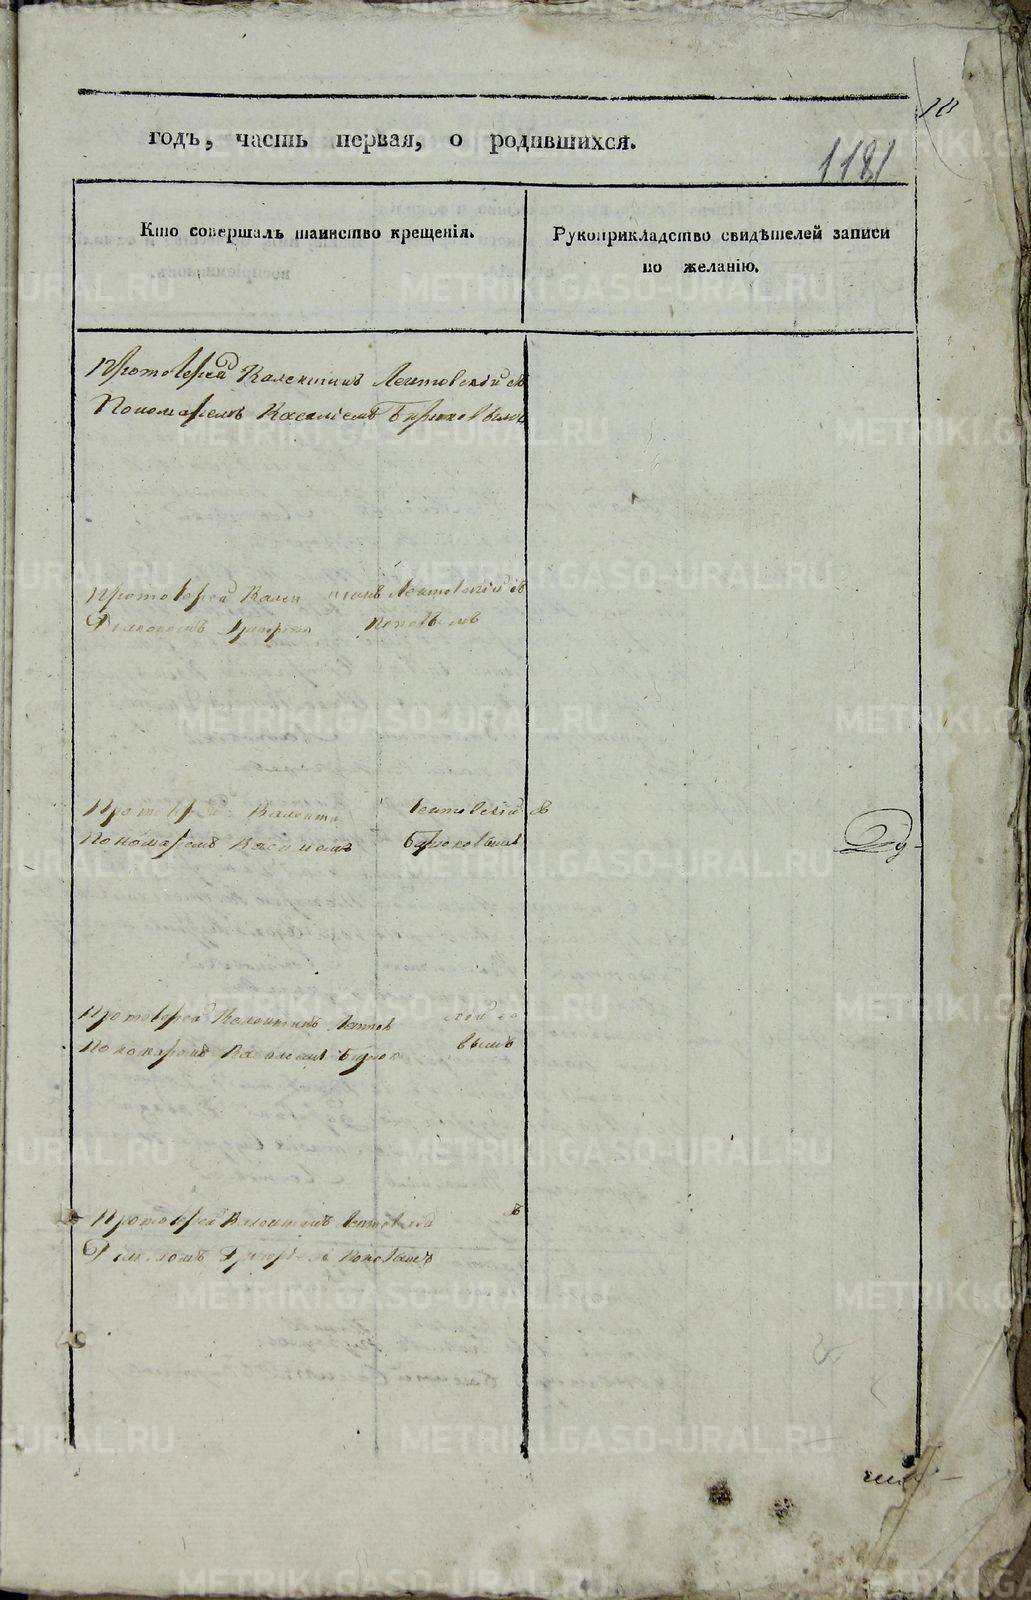 годъ, часть первая, о родившихся.
1181
Кто совершалъ таинство крещенія.
Рукоприкладство свидѣтелей записи
по желанію.
Протоіерей Валентинъ Лентовскій съ
Пономаремъ Василіемъ Бирюковымъ
Протоіерей Лентовскій съ
Діакономъ Григоріемъ Поповымъ
Протоіерей Валенти Лентовскій съ
Пономаремъ Василіемъ Бирюковымъ
Протоіерей Валентинъ Лентов скій со
Пономаремъ Василіемъ Бирюк вымъ
Протоіерей Валентинъ Лентовскій съ
Діакономъ Григоріемъ Поповымъ
METRIKI.GASO-URAL.RU